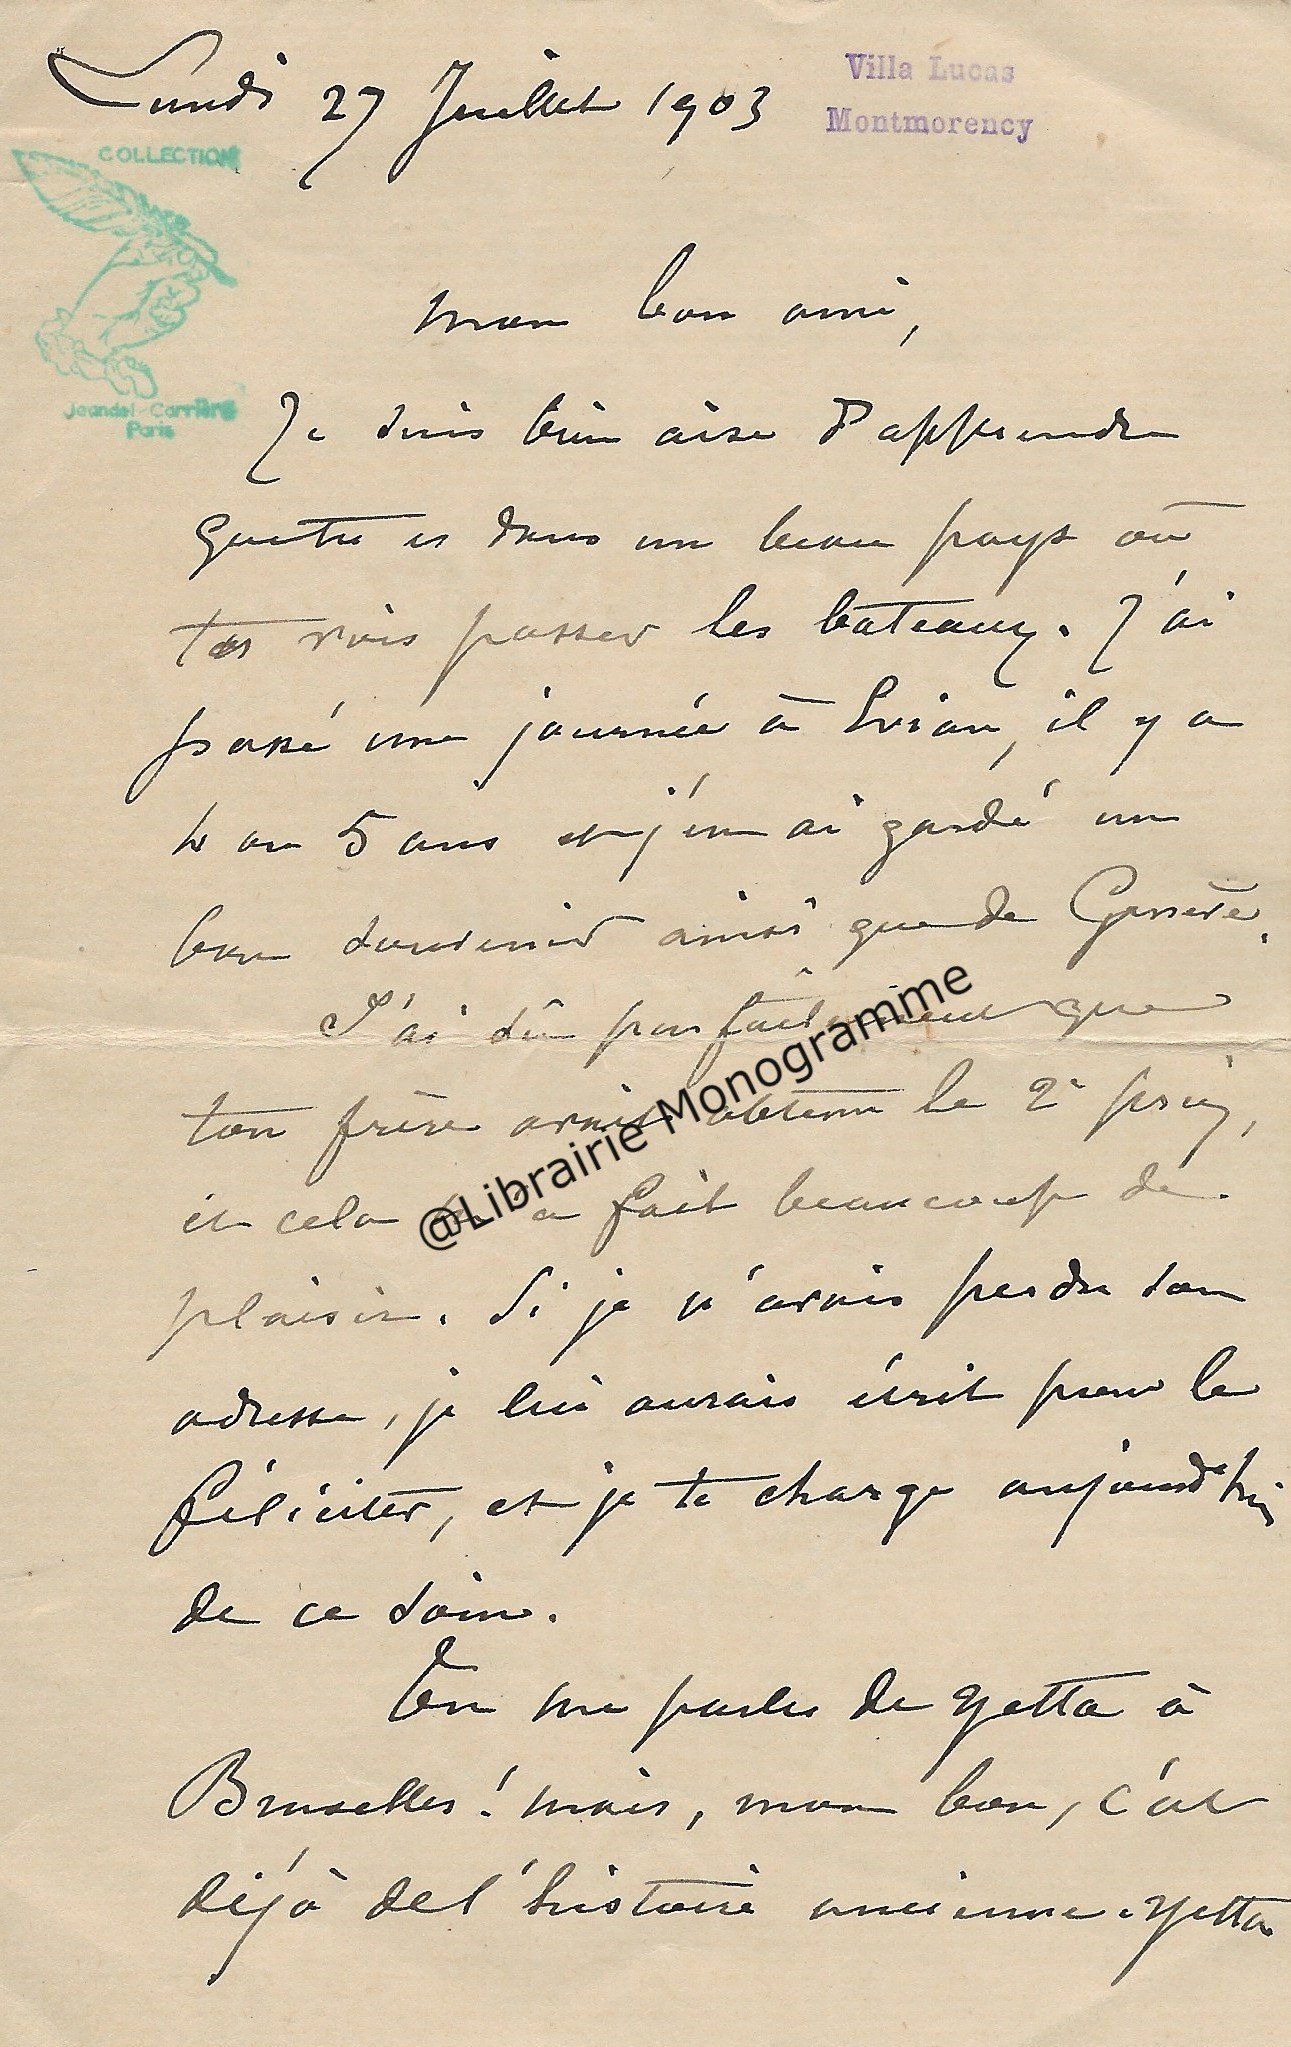 Lundi 27 Juillet 1903
Villa Lucas
Montmorency
COLLECTION
Jeandel-Carrière
Paris
mon bon ami,
Je suis bien aise d'apprendre
que tu es dans un beau pays où
tu vois passer les bateaux. J'ai
passé une journée à Evian, il y a
4 ou 5 ans et j'en ai gardé un
bon souvenir ainsi que de Genève.
J'ai su parfaitement que
ton frère avait obtenu le 2e prix,
et cela m'a fait beaucoup de
plaisir. Si je n'avais perdu son
adresse, je lui aurais écrit pour le
féliciter, et je te charge aujourd'hui
de ce soin.
Tu me parles de Yetta à
Bruxelles! mais, mon bon, c'est
déjà de l'histoire ancienne. Yetta
@Librairie Monogramme